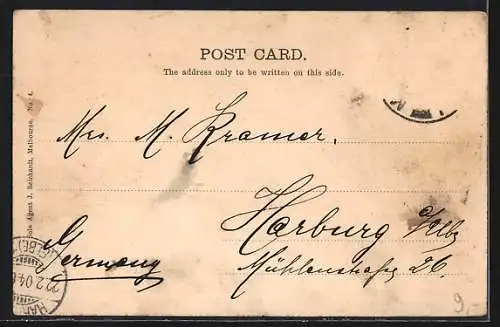 POST CARD.
The address only to be written on this side.
Agent J. Reinhardt, Melbourne. No. 4.
Mrs. M. Kramer,
Harburg a/Elbe
Germany
Mühlenstraße 26.
22.2.04
9,-